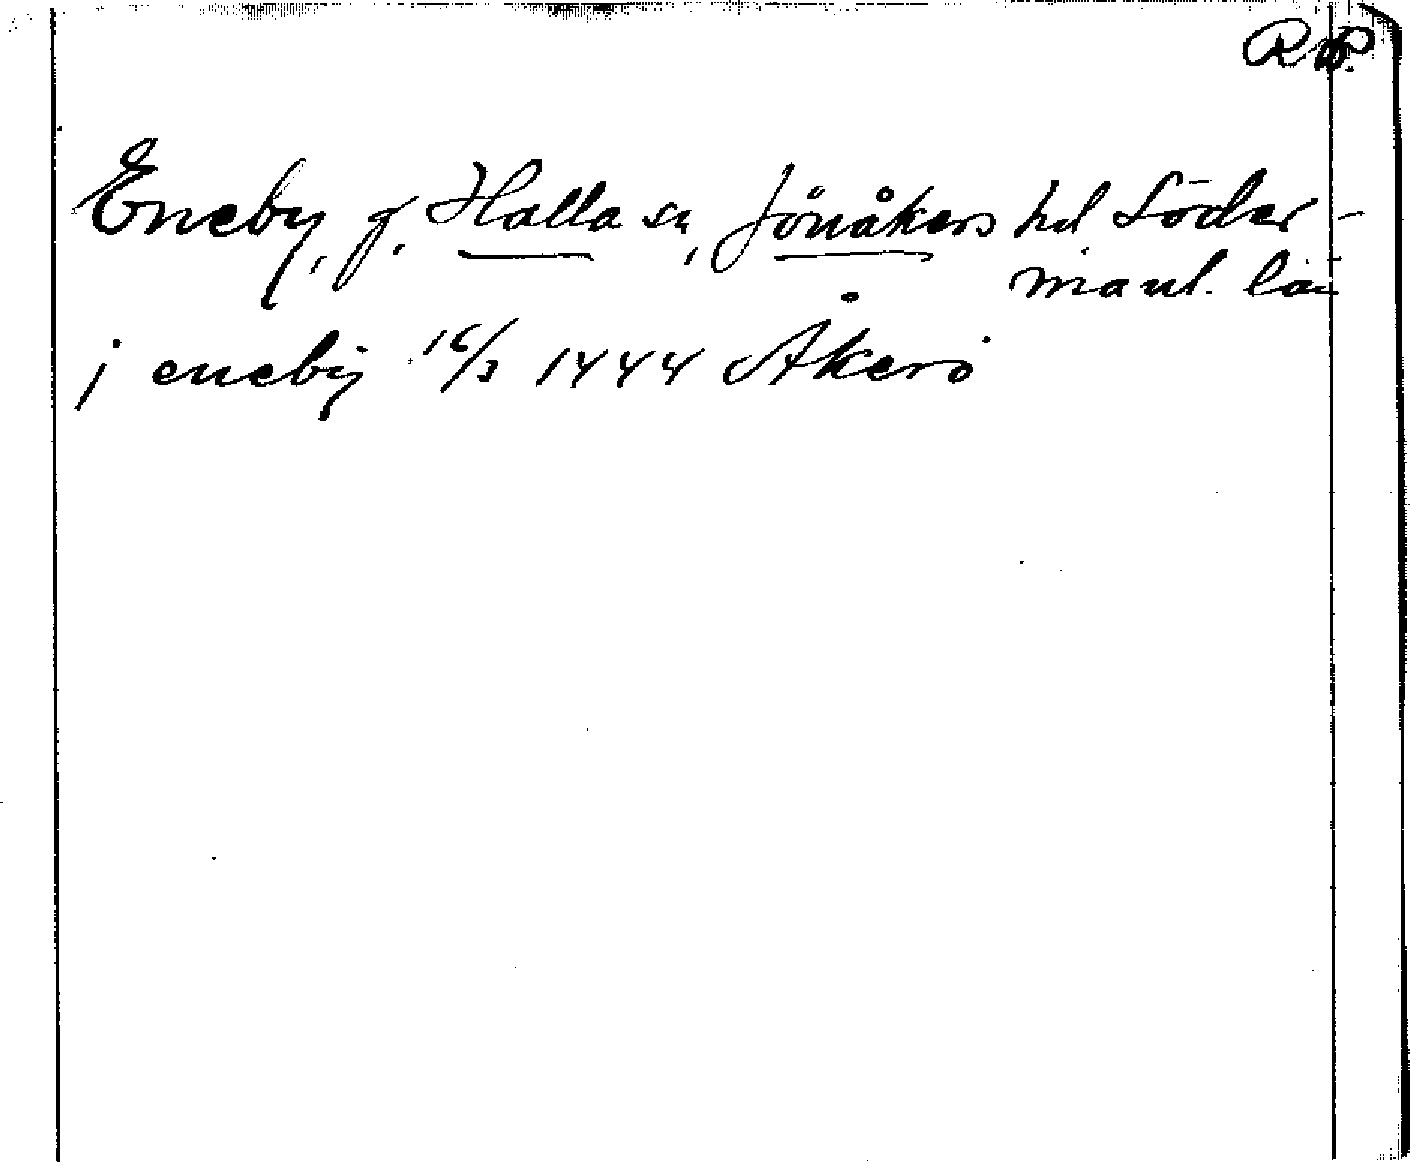 RAP.
Eneby, g. Halla sn, Jönåkers hd Söder-
manl. län
j enebÿ 16/3 1444 Åkerö